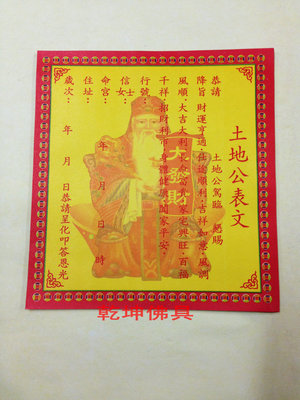 土地公表文
恭請
土地公駕臨 懇賜
降旨財運亨通．仕途順利．吉祥如意．風調
風順．大吉大利
家宅興旺．百福
千祥．招財利市．身體健康．闔家平安．
行號：
信士女：
命宮： 年 月 日 時
住址：
歲次： 年 月 日恭請呈化叩答恩光
大發財
乾坤佛具